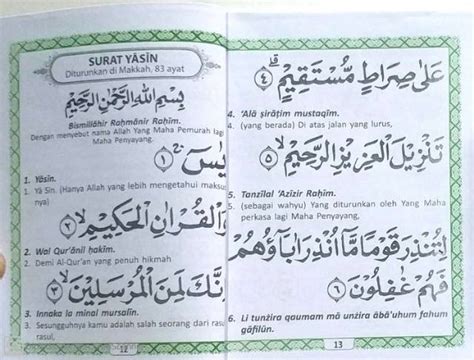 SURAT YĀSĪN
Diturunkan di Makkah, 83 ayat
بِسْمِ اللهِ الرَّحْمٰنِ الرَّحِيْمِ
Bismillāhir Raḥmānir Raḥīm.
Dengan menyebut nama Allah Yang Maha Pemurah lagi
Maha Penyayang.
يٰسٓ ۚ ١
1. Yāsīn.
1. Yā Sīn. (Hanya Allah yang lebih mengetahui maksud
nya)
وَالْقُرْاٰنِ الْحَكِيْمِ ۙ ٢
2. Wal Qur'ānil ḥakīm.
2. Demi Al-Qur'an yang penuh hikmah
اِنَّكَ لَمِنَ الْمُرْسَلِيْنَ ۙ ٣
3. Innaka la minal mursalīn.
3. Sesungguhnya kamu adalah salah seorang dari rasul
rasul,
12
عَلٰى صِرَاطٍ مُّسْتَقِيْمٍ ۗ ٤
4. 'Alā ṣirāṭim mustaqīm.
4. (yang berada) Di atas jalan yang lurus,
تَنْزِيْلَ الْعَزِيْزِ الرَّحِيْمِ ۙ ٥
5. Tanzīlal 'Azīzir Raḥīm.
5. (sebagai wahyu) Yang diturunkan oleh Yang Maha
perkasa lagi Maha Penyayang,
لِتُنْذِرَ قَوْمًا مَّآ اُنْذِرَ اٰبَاۤؤُهُمْ
فَهُمْ غٰفِلُوْنَ ٦
6. Li tunżira qaumam mā unżira ābā'uhum fahum
gāfilūn.
13